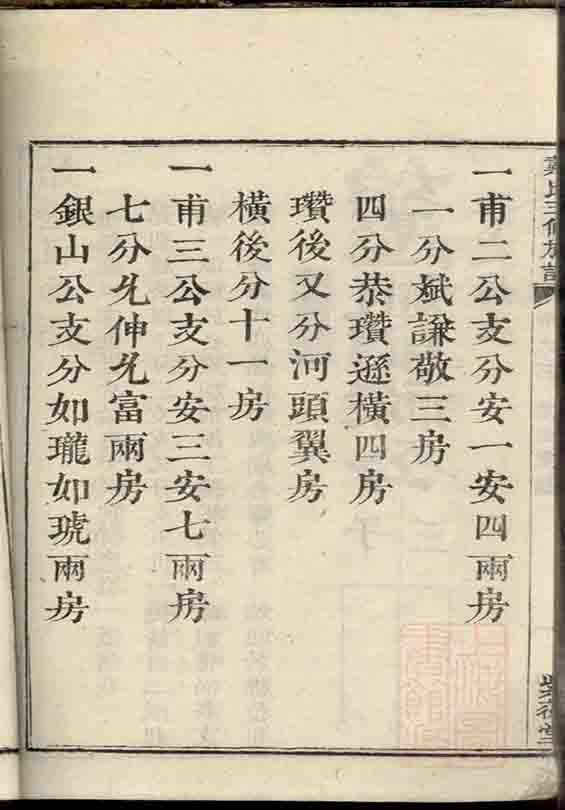 一甫二公支分安一安四兩房
一分斌謙敬三房
四分恭瓚遜橫四房
瓚後又分河頭翼房
橫後分十一房
一甫三公支分安三安七兩房
七分允伸允富兩房
一銀山公支分如瓏如琥兩房